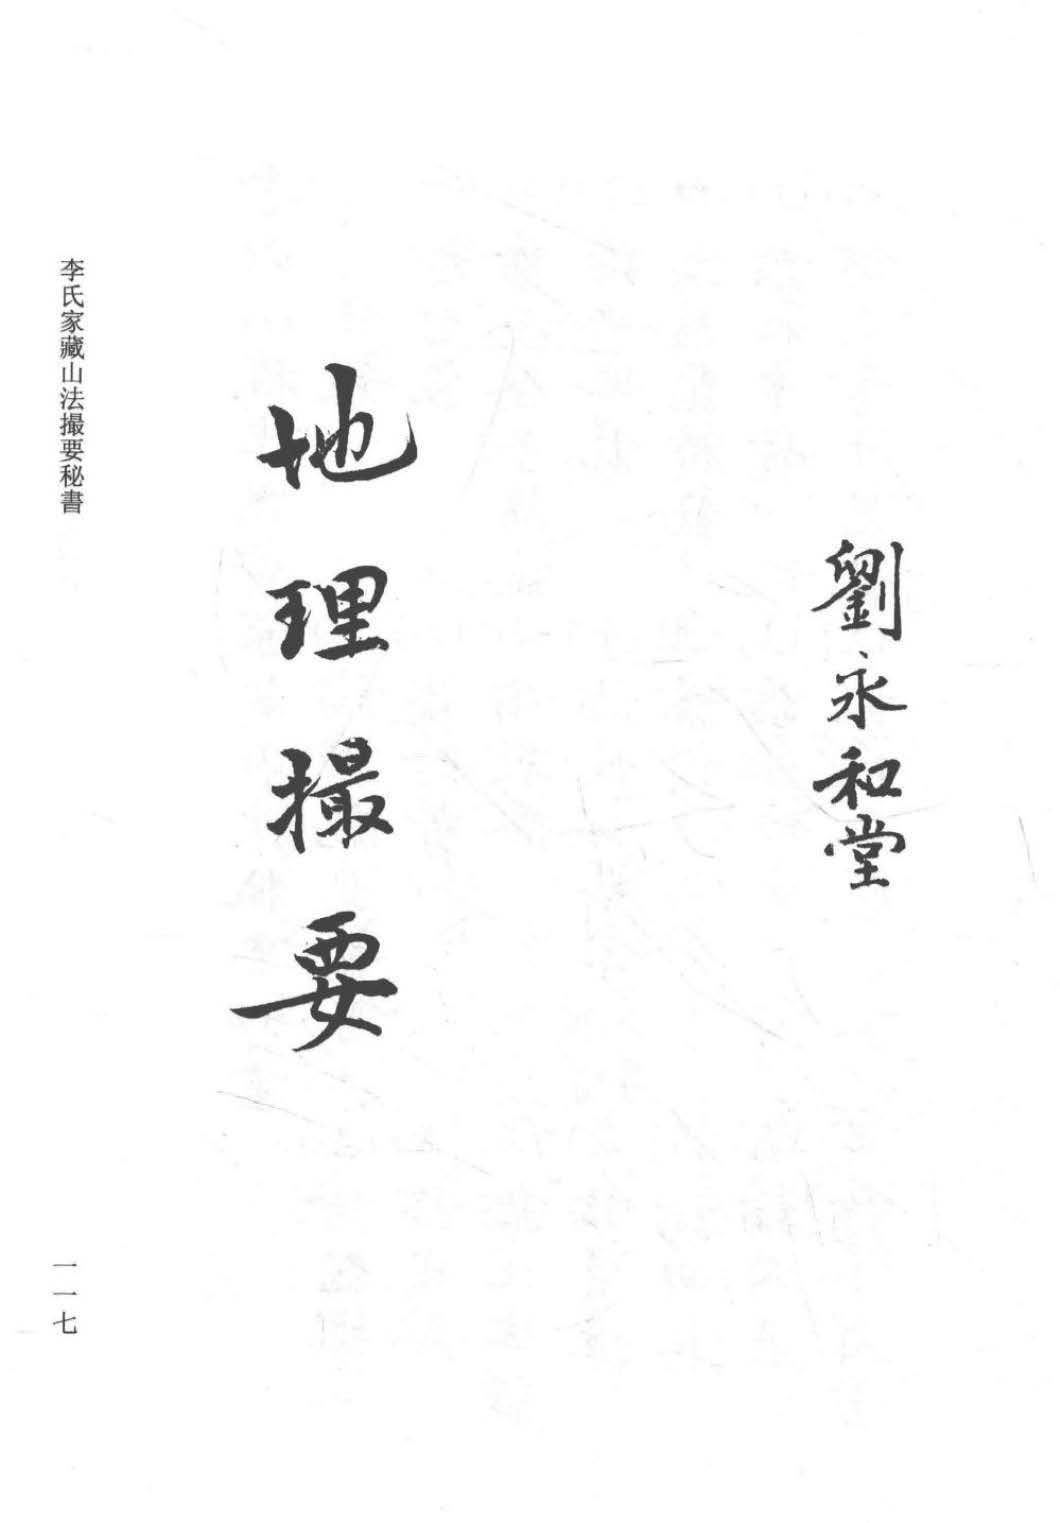 劉永和堂
地理撮要
李氏家藏山法撮要秘書
一一七